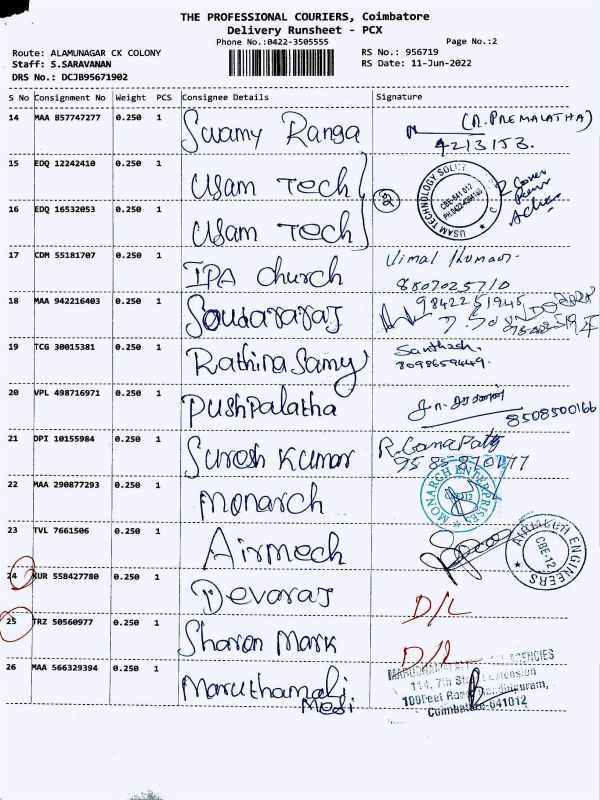 THE PROFESSIONAL COURIERS, Coimbatore
Delivery Runsheet - PCX
Phone No.:0422-3505555 Page No.:2
Route: ALAMUNAGAR CK COLONY RS No.: 956719
Staff: S.SARAVANAN RS Date: 11-Jun-2022
DRS No.: DCJB95671902
S No Consignment No Weight PCS Consignee Details Signature
14 MAA 857747277 0.250 1 Swamy Ranga (R. PREMALATHA)
4213153.
15 EDQ 12242410 0.250 1 Usam Tech
USAM TECHNOLOGY
CBE-641 012
16 EDQ 16532053 0.250 1 Usam Tech 2
17 CDM 55181707 0.250 1 IPA church Vimal Kumar.
8807025710
18 MAA 942216403 0.250 1 Soudararaj 9842251945
19 TCG 30015381 0.250 1 Rathinasamy Santhosh.
8098659449.
20 VPL 498716971 0.250 1 Pushpalatha
8508500166
21 DPI 10155984 0.250 1 Suresh Kumar R. Ganapathy
22 MAA 290877293 0.250 1 Monarch MONARCH ENTERPRISES
23 TVL 7661506 0.250 1 Airmech AIRMECH ENGINEERS
CBE-12
24 KUR 558427780 0.250 1 Devaraj D/L
25 TRZ 50560977 0.250 1 Sharon Mark D/L
26 MAA 566329394 0.250 1 Maruthamali
Medi
AGENCIES
114, 7th Extension
100Feet
Coimbatore-641012